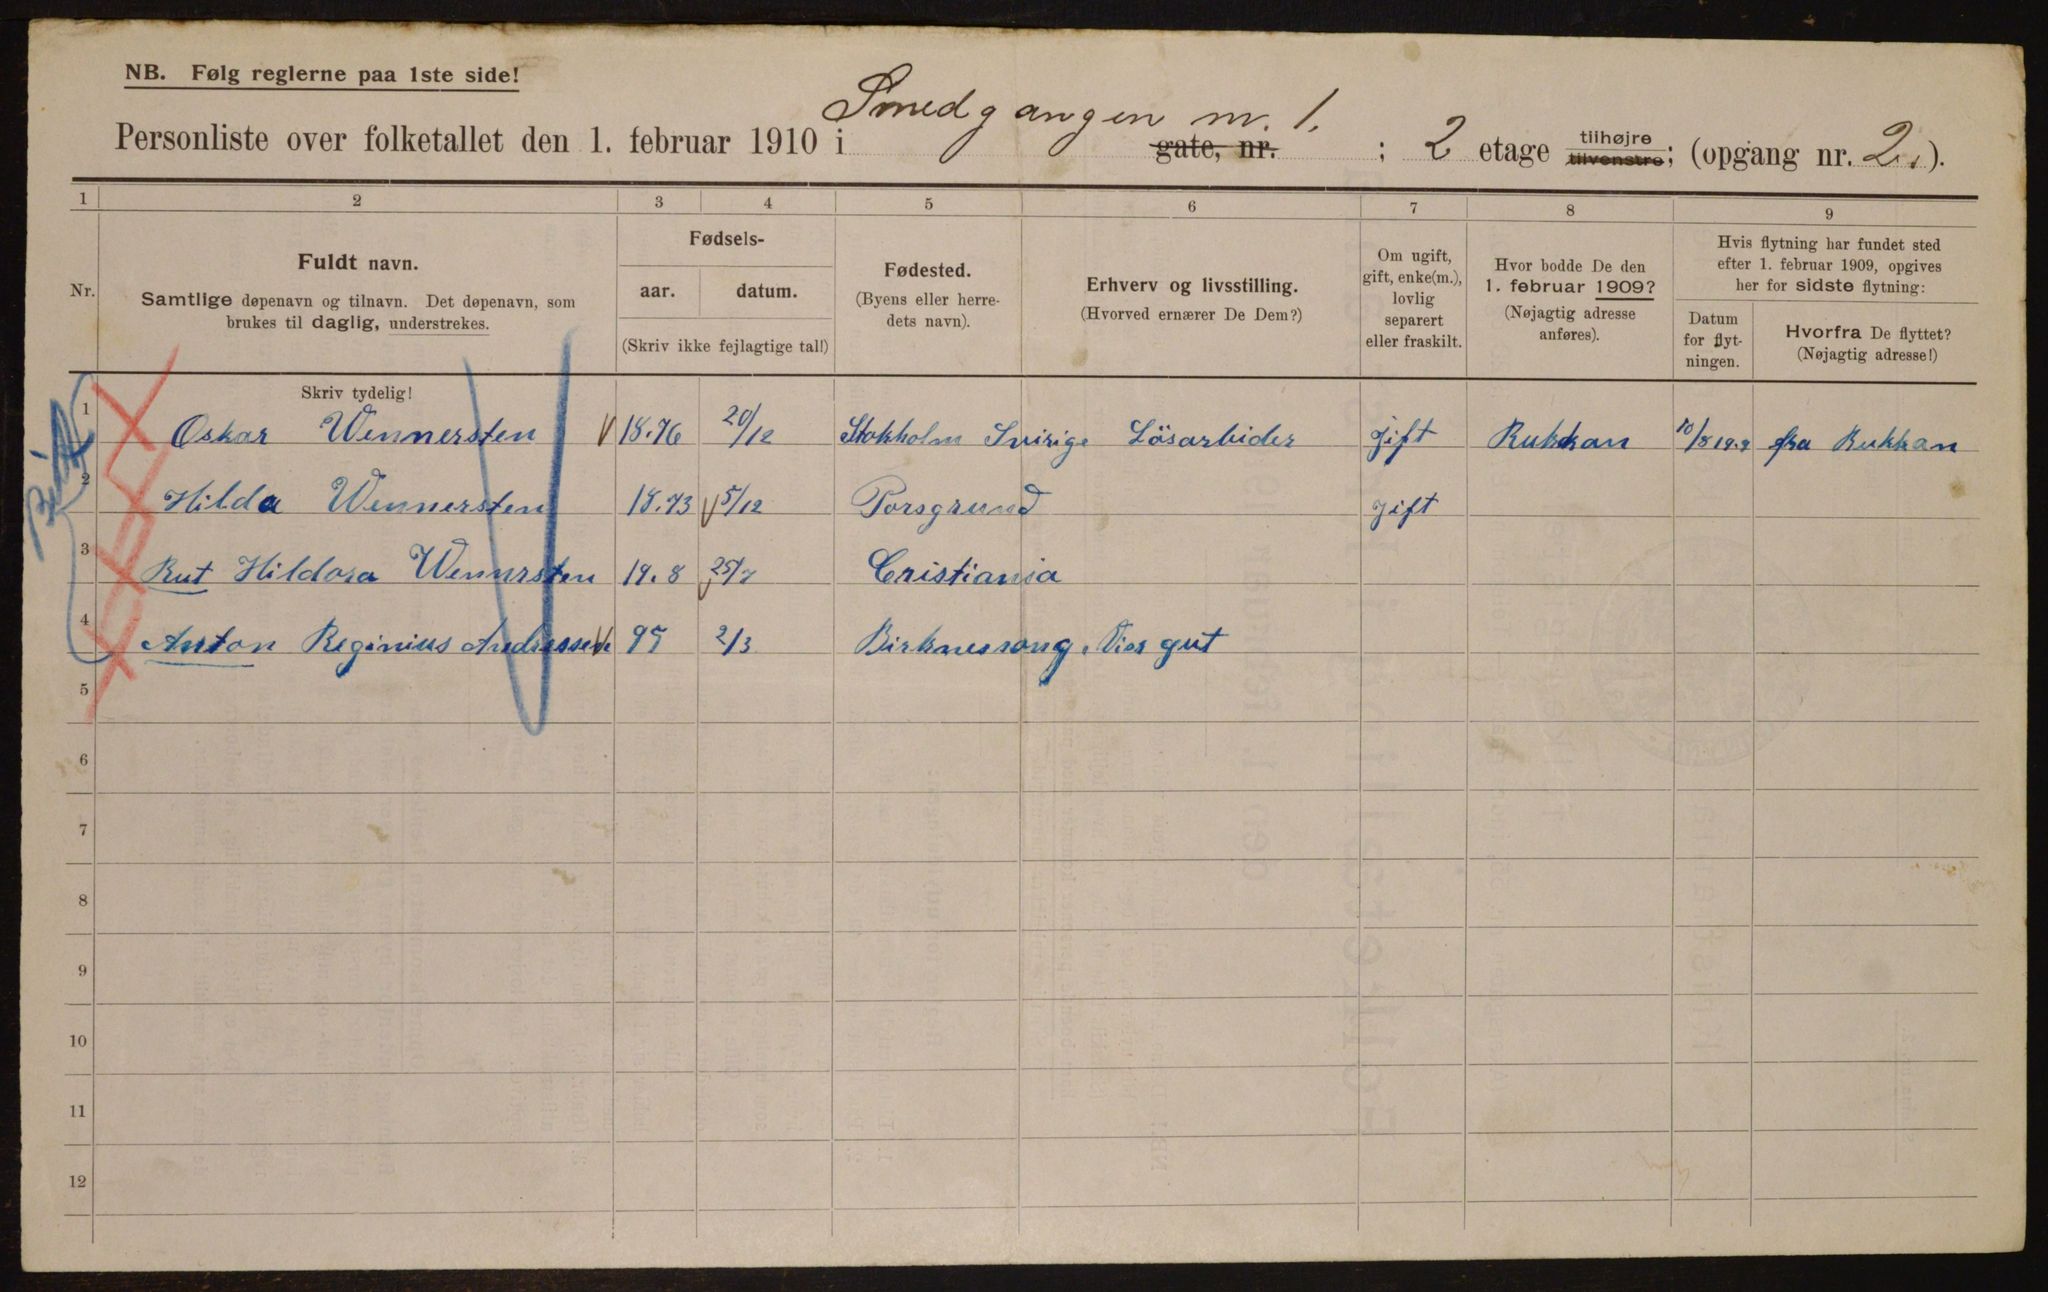 NB. Følg reglerne paa 1ste side!
Smedgangen nr. 1.
Personliste over folketallet den 1. februar 1910 i gate, nr. ; 2 etage tilhøjre tilvenstre; (opgang nr. 2.).
1 2 3 4 5 6 7 8 9
Nr.
Fuldt navn.
Samtlige døpenavn og tilnavn. Det døpenavn, som
brukes til daglig, understrekes.
Fødsels-
aar. datum.
(Skriv ikke fejlagtige tal!)
Fødested.
(Byens eller herre-
dets navn).
Erhverv og livsstilling.
(Hvorved ernærer De Dem?)
Om ugift,
gift, enke(m.),
lovlig
separert
eller fraskilt.
Hvor bodde De den
1. februar 1909?
(Nøjagtig adresse
anføres).
Hvis flytning har fundet sted
efter 1. februar 1909, opgives
her for sidste flytning:
Datum
for flyt-
ningen.
Hvorfra De flyttet?
(Nøjagtig adresse!)
Skriv tydelig!
1 Oskar Wennersten 18.76 20/12 Stokholm Svirige Lösarbider Jift Rukkan 10/8 19.9 fra Rukkan
2 Hilda Wennersten 18.73 5/12 Porsgrund Jift
3 Rut Hildora Wennersten 19.8 25/7 Cristiania
4 Anton Reginius Andressen 95 2/3 Visergut
5
6
7
8
9
10
11
12